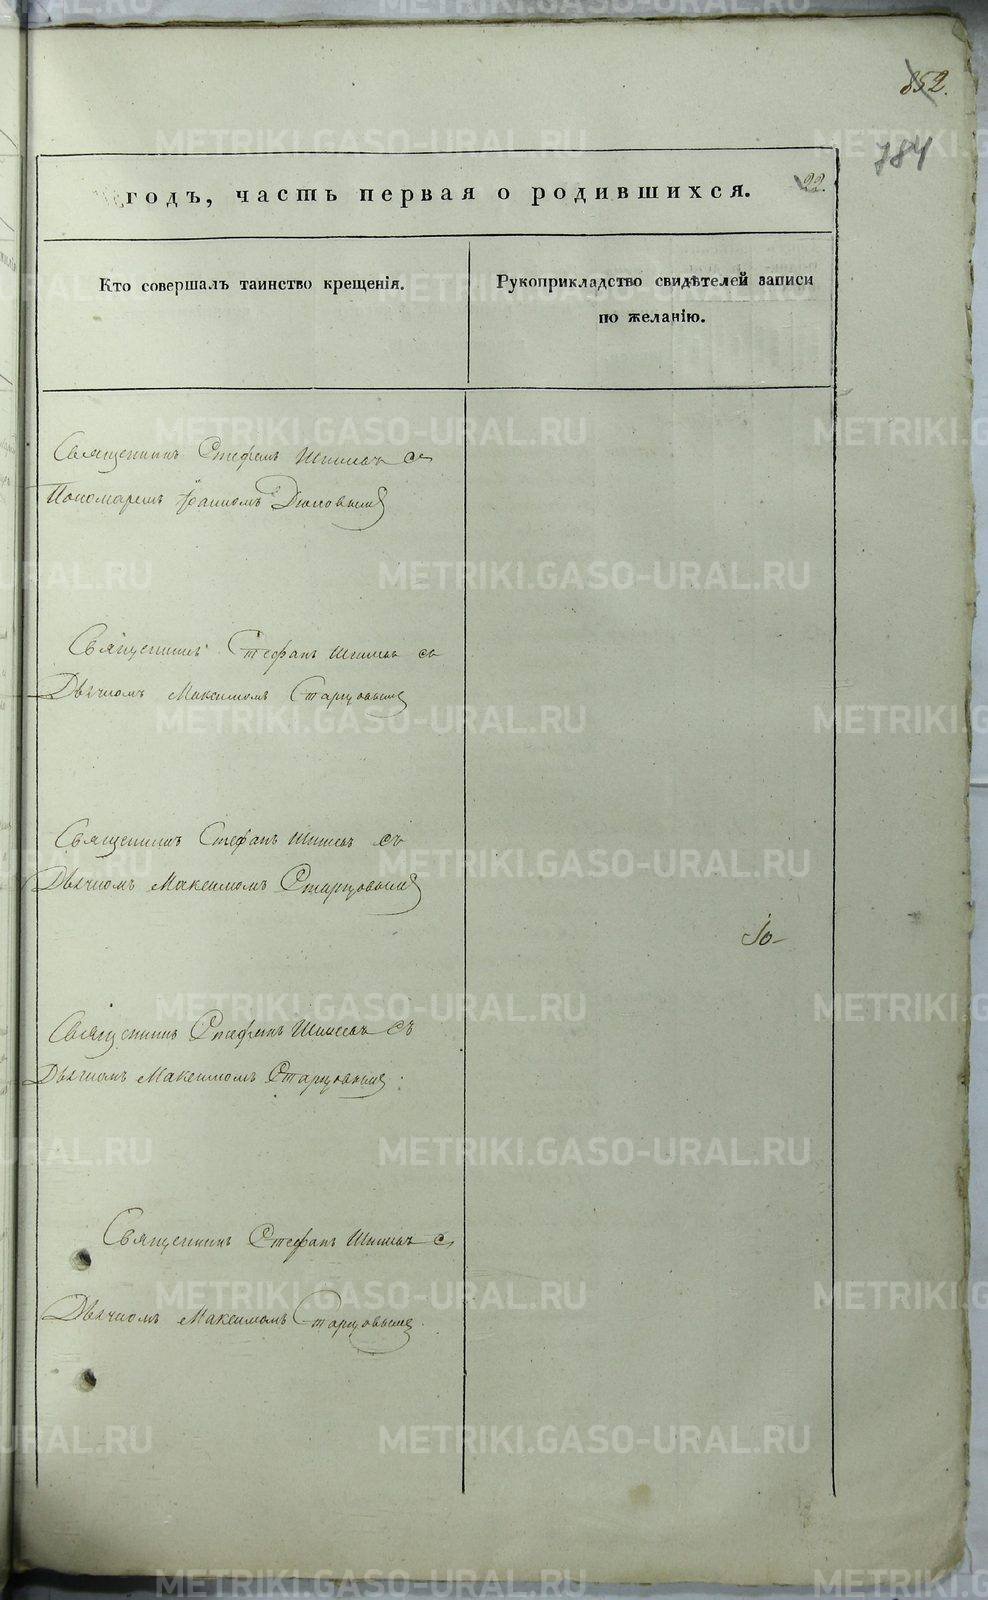 852.
784
годъ, часть первая о родившихся.
22.
Кто совершалъ таинство крещенія.
Рукоприкладство свидѣтелей записи
по желанію.
Священникъ Стефанъ съ
Пономаремъ
Священникъ Стефанъ съ
Дьячкомъ Максимомъ Старцовымъ
Священникъ Стефанъ съ
Дьячкомъ Максимомъ Старцовымъ
Священникъ Стефанъ съ
Дьячкомъ Максимомъ Старцовымъ
Священникъ Стефанъ съ
Дьячкомъ Максимомъ Старцовымъ.
METRIKI.GASO-URAL.RU